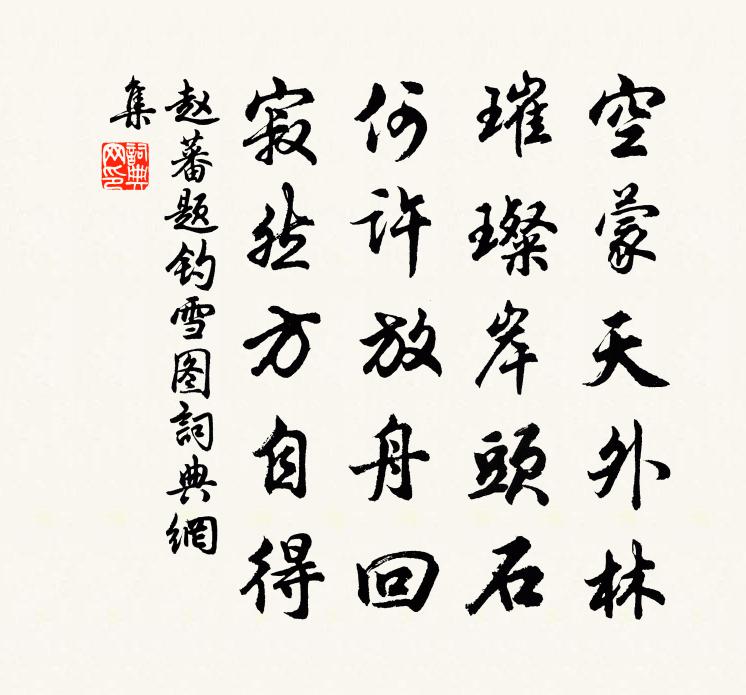 空蒙天外林
璀璨岸頭石
何許放舟回
寂然方自得
赵蕃题钓雪图詞典網
集
詞典网印